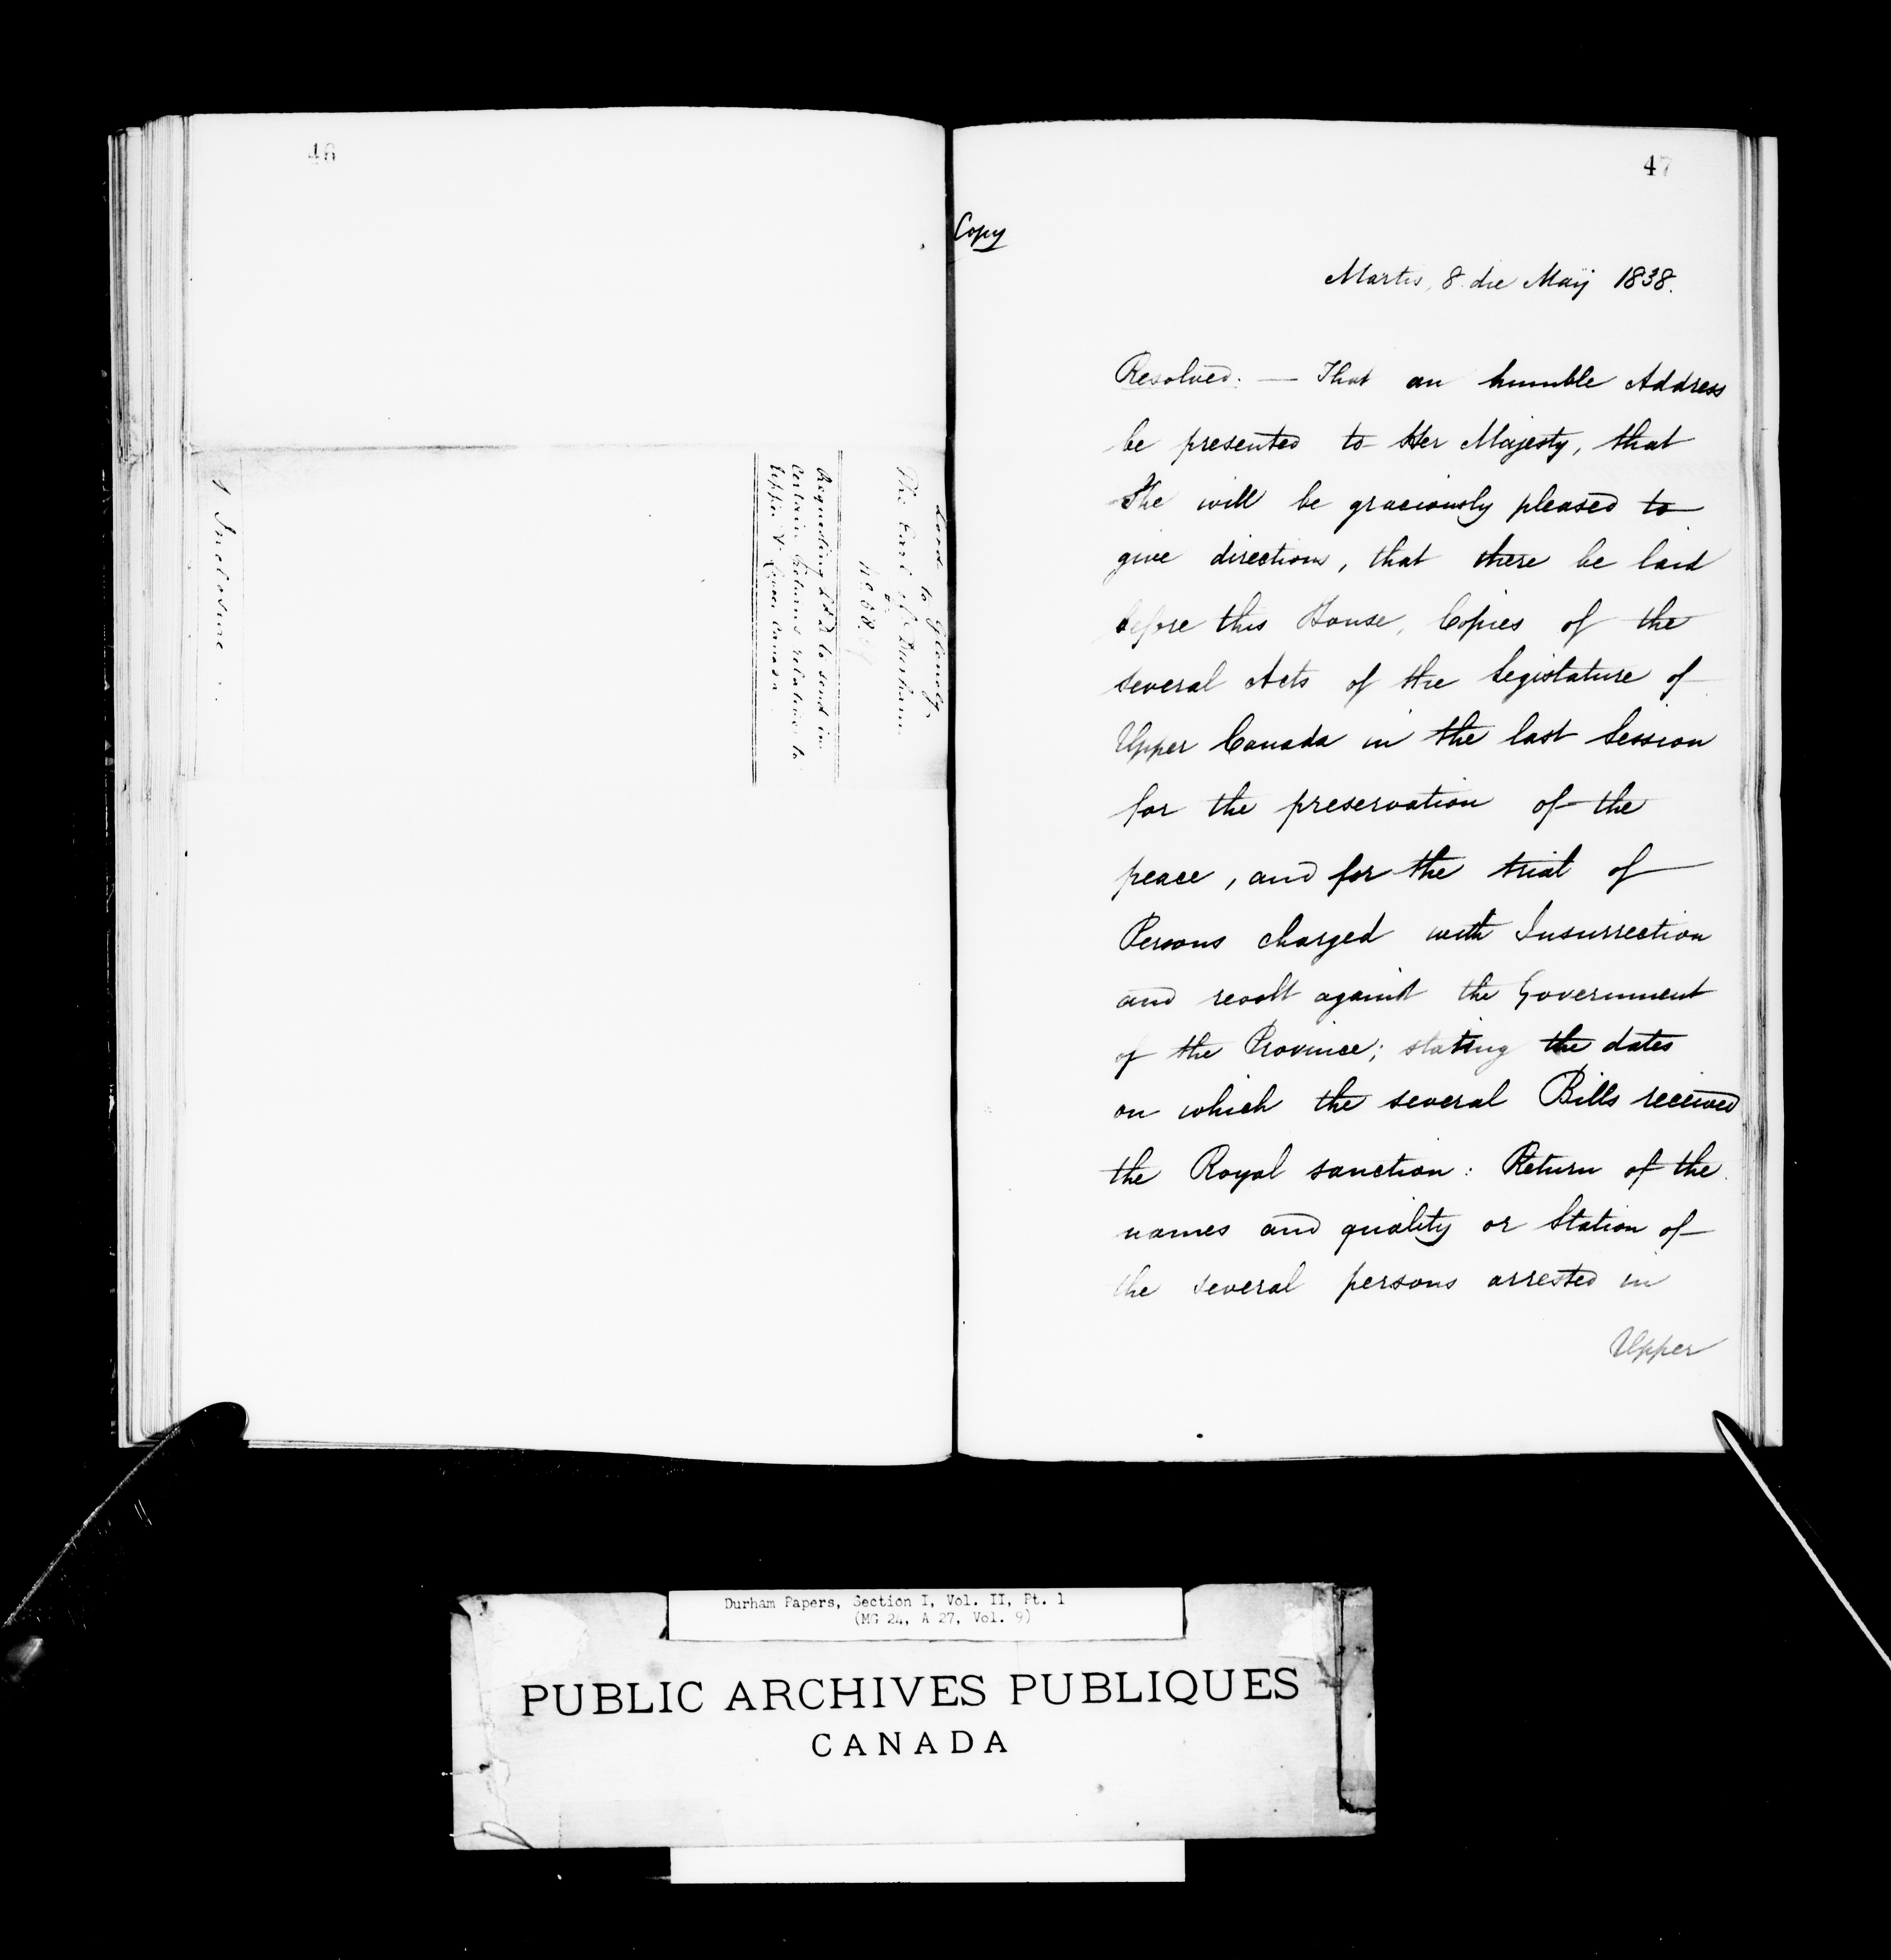 46
Lord Glenelg,
to
The Earl of Durham.
Requesting Ld D to send in
Certain Returns relative to
Upper & Lower Canada
1 Inclosure
47
Copy
Martis, 8 die Maij 1838.
Resolved: — That an humble Address
be presented to Her Majesty, that
She will be graciously pleased to
give directions, that there be laid
before this House, Copies of the
several Acts of the Legislature of
Upper Canada in the last Session
for the preservation of the
peace, and for the trial of
Persons charged with Insurrection
and revolt against the Government
of the Province; stating the dates
on which the several Bills received
the Royal sanction: Return of the
names and quality or Station of
the several persons arrested in
Upper
Durham Papers, Section I, Vol. II, Pt. 1
(MG 24, A 27, Vol. 9)
PUBLIC ARCHIVES PUBLIQUES
CANADA